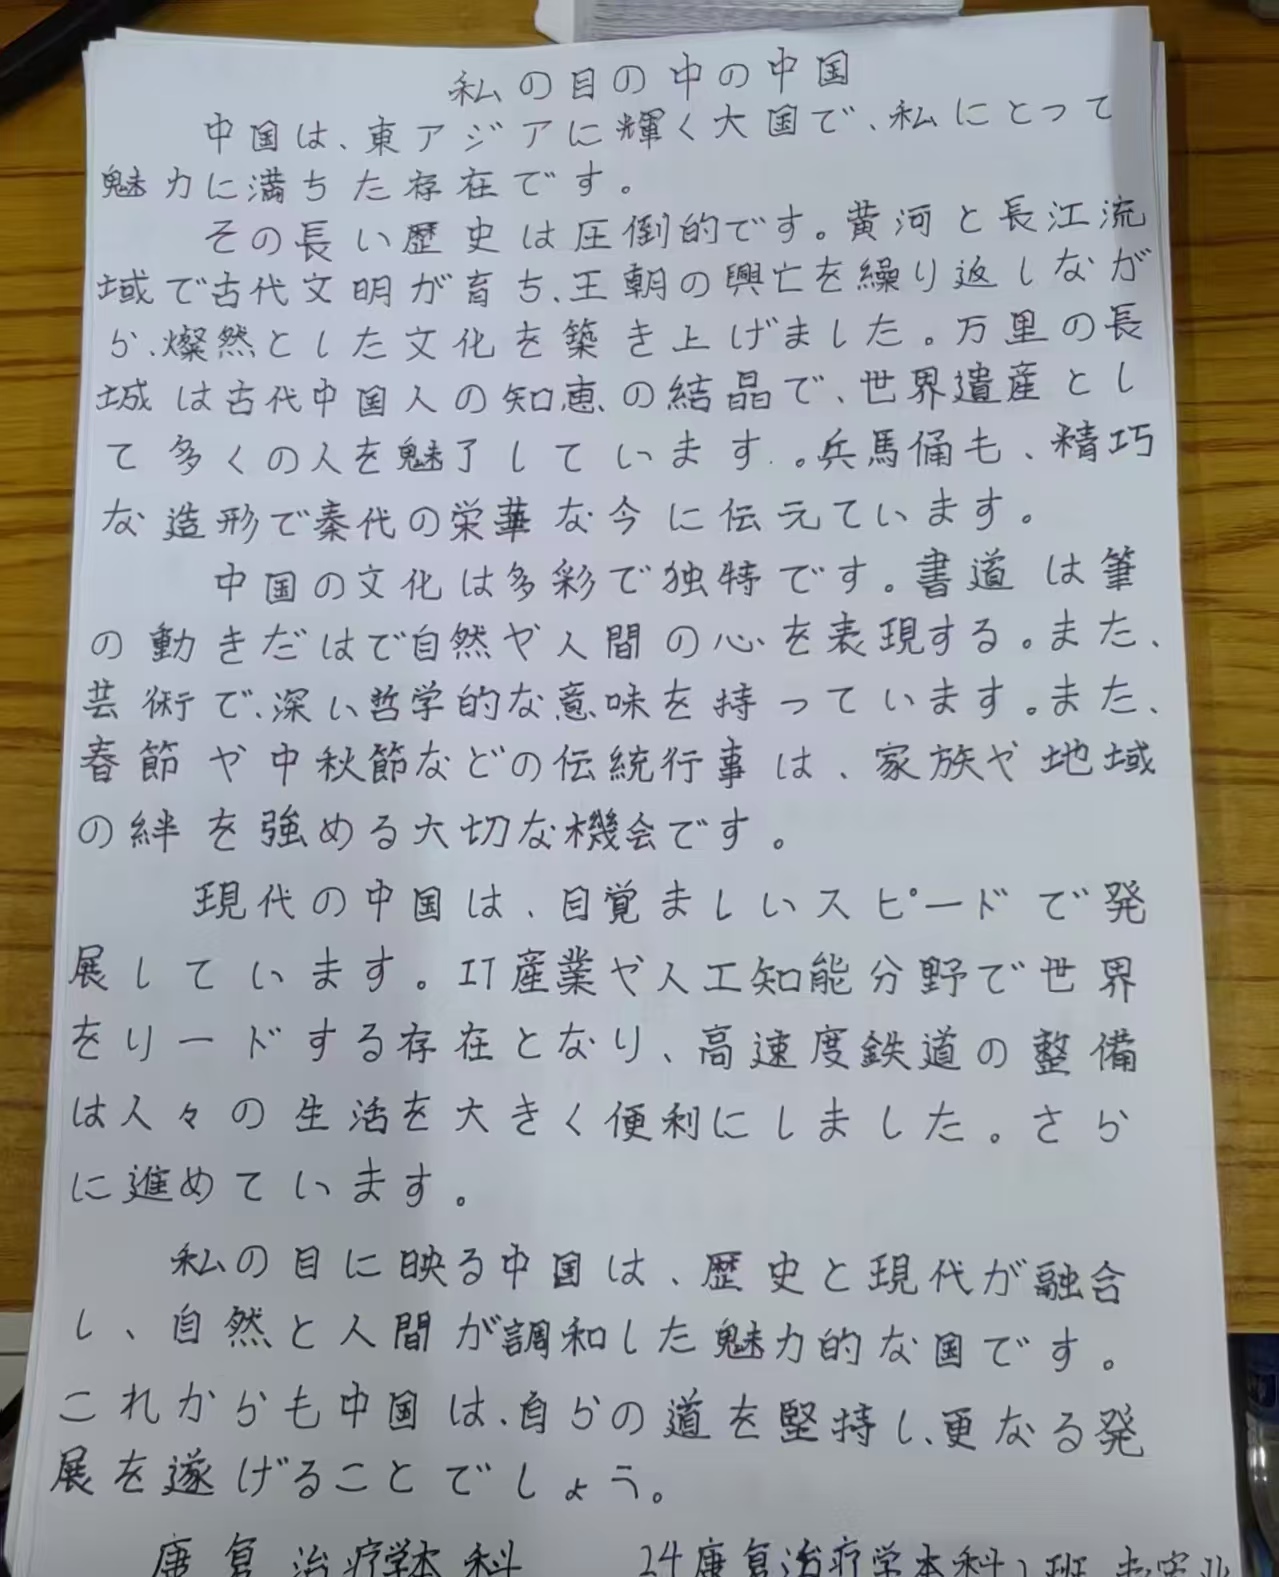 私の目の中の中国
中国は、東アジアに輝く大国で、私にとって
魅力に満ちた存在です。
その長い歴史は圧倒的です。黄河と長江流
域で古代文明が育ち、王朝の興亡を繰り返しなが
ら、燦然とした文化を築き上げました。万里の長
城は古代中国人の知恵の結晶で、世界遺産とし
て多くの人を魅了しています。。兵馬俑も、精巧
な造形で秦代の栄華な今に伝えています。
中国の文化は多彩で独特です。書道は筆
の動きだはで自然や人間の心を表現する。また、
芸術で、深い哲学的な意味を持っています。また、
春節や中秋節などの伝統行事は、家族や地域
の絆を強める大切な機会です。
現代の中国は、目覚ましいスピードで発
展しています。IT産業や人工知能分野で世界
をリードする存在となり、高速度鉄道の整備
は人々の生活を大きく便利にしました。さら
に進めています。
私の目に映る中国は、歴史と現代が融合
し、自然と人間が調和した魅力的な国です。
これからも中国は、自らの道を堅持し、更なる発
展を遂げることでしょう。
康复治疗学本科 24康复治疗学本科1班